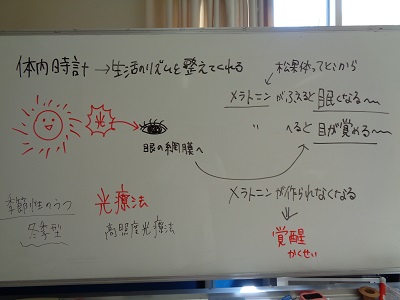 体内時計→生活のリズムを整えてくれる
光
眼の網膜へ
松果体ってとこから
メラトニンがふえると眠くなる〜〜
〃 へると目が覚める〜〜
メラトニンが作られなくなる
⇓
覚醒
かくせい
季節性のうつ
冬季型
光療法
高照度光療法